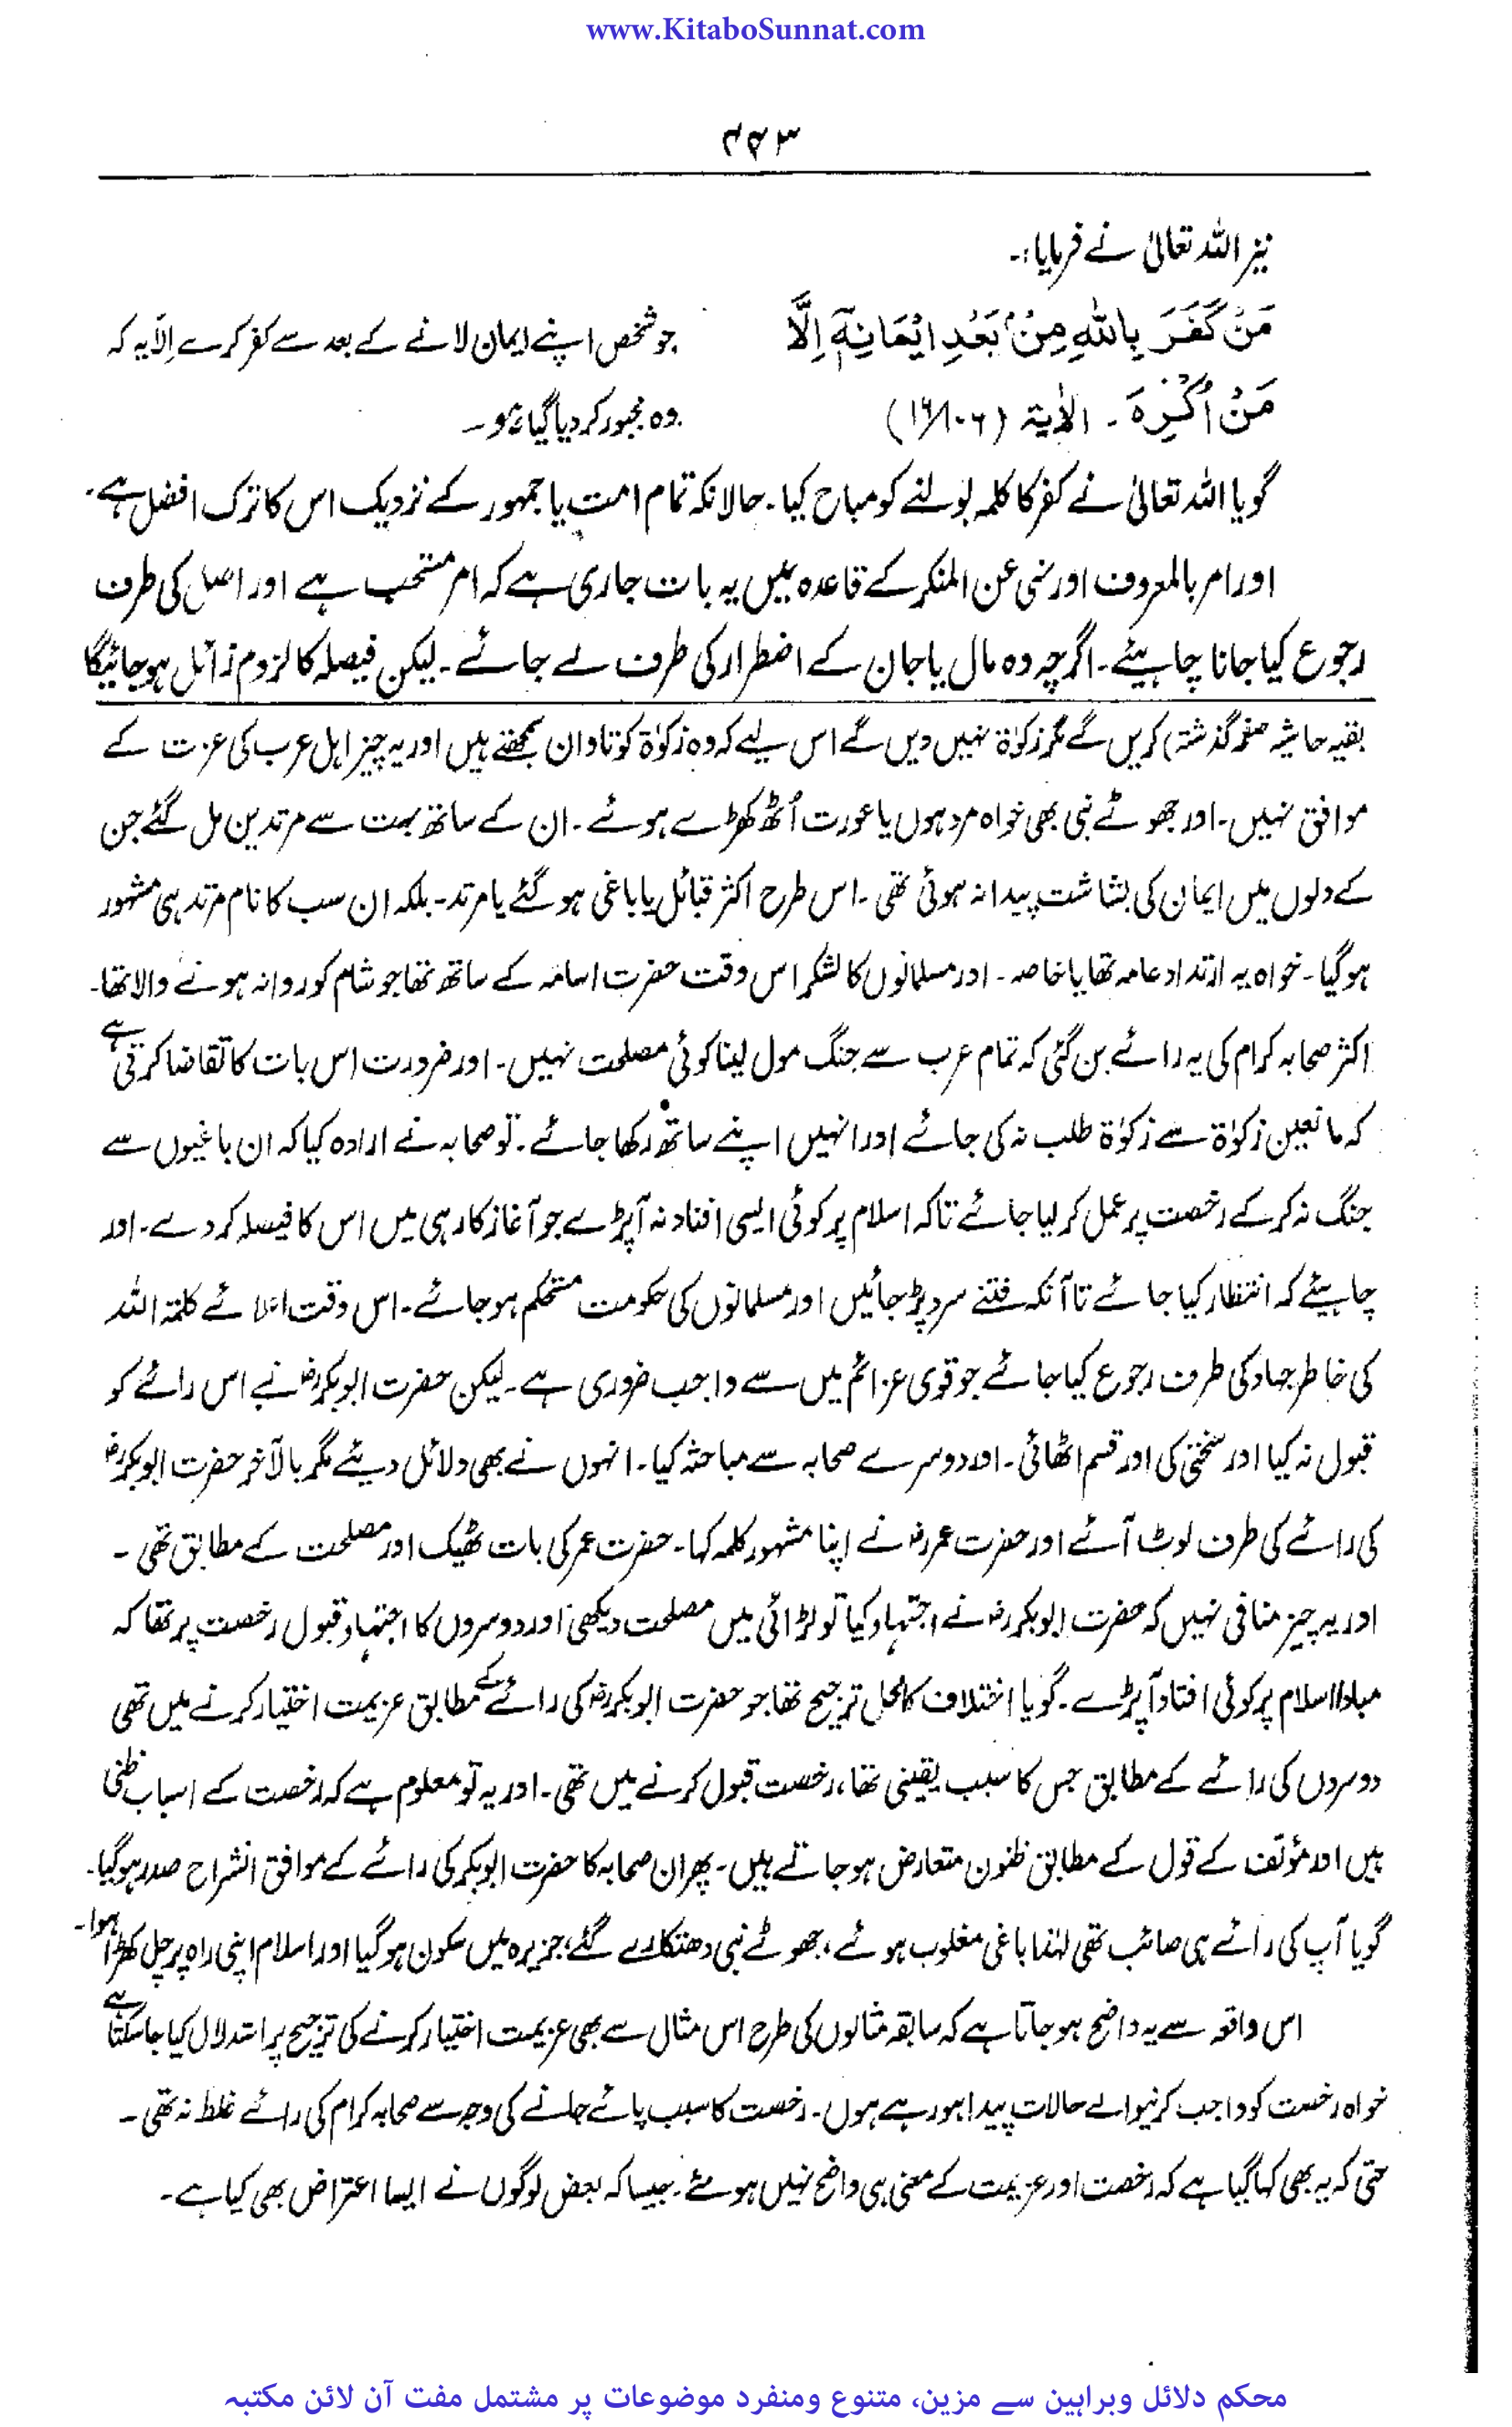 www.KitaboSunnat.com
۴۶۳
نیز اللہ تعالیٰ نے فرمایا:۔
مَنْ كَفَرَ بِاللّٰهِ مِنْۢ بَعْدِ اِيْمَانِهٖٓ اِلَّا
جو شخص اپنے ایمان لانے کے بعد سے کفر کرے اِلّا یہ کہ
مَنْ اُكْرِهَ ۔ الاٰیۃ (۱۶/۱۰۶)
وہ مجبور کر دیا گیا ہو ۔
گویا اللہ تعالیٰ نے کفر کا کلمہ بولنے کو مباح کیا۔ حالانکہ تمام امت یا جمہور کے نزدیک اس کا ترک افضل ہے۔
اور امر بالمعروف اور نہی عن المنکر کے قاعدہ میں یہ بات جاری ہے کہ امر مستحب ہے اور اصل کی طرف
رجوع کیا جانا چاہیئے۔ اگرچہ وہ مال یا جان کے اضطرار کی طرف لے جائے۔ لیکن فیصلہ کا لزوم زائل ہو جائیگا
بقیہ حاشیہ صفحہ گذشتہ) کریں گے مگر زکوٰۃ نہیں دیں گے اس لیے کہ وہ زکوٰۃ کو تاوان سمجھتے ہیں اور یہ چیز اہل عرب کی عزت کے
موافق نہیں۔ اور جھوٹے نبی بھی خواہ مرد ہوں یا عورت اُٹھ کھڑے ہوئے۔ ان کے ساتھ بہت سے مرتدین مل گئے جن
کے دلوں میں ایمان کی بشاشت پیدا نہ ہوئی تھی۔ اس طرح اکثر قبائل یا باغی ہو گئے یا مرتد۔ بلکہ ان سب کا نام مرتد ہی مشہور
ہو گیا۔ خواہ یہ ارتداد عامہ تھا یا خاصہ۔ اور مسلمانوں کا لشکر اس وقت حضرت اسامہ کے ساتھ تھا جو شام کو روانہ ہونے والا تھا۔
اکثر صحابہ کرام کی یہ رائے بن گئی کہ تمام عرب سے جنگ مول لینا کوئی مصلحت نہیں۔ اور ضرورت اس بات کا تقاضا کرتی ہے
کہ مانعین زکوٰۃ سے زکوٰۃ طلب نہ کی جائے اور انہیں اپنے ساتھ رکھا جائے۔ تو صحابہ نے ارادہ کیا کہ ان باغیوں سے
جنگ نہ کر کے رخصت پر عمل کر لیا جائے تاکہ اسلام پر کوئی ایسی افتاد نہ آپڑے جو آغاز کار ہی میں اس کا فیصلہ کر دے۔ اور
چاہیئے کہ انتظار کیا جائے تاآنکہ فتنے سرد پڑ جائیں اور مسلمانوں کی حکومت مستحکم ہو جائے۔ اس وقت اعلائے کلمۃ اللہ
کی خاطر جہاد کی طرف رجوع کیا جائے جو قوی عزائم میں سے واجب ضروری ہے۔ لیکن حضرت ابوبکرؓ نے اس رائے کو
قبول نہ کیا اور سختی کی اور قسم اٹھائی۔ اور دوسرے صحابہ سے مباحثہ کیا۔ انہوں نے بھی دلائل دیئے مگر بالآخر حضرت ابوبکرؓ
کی رائے کی طرف لوٹ آئے اور حضرت عمرؓ نے اپنا مشہور کلمہ کہا۔ حضرت عمر کی بات ٹھیک اور مصلحت کے مطابق تھی ۔
اور یہ چیز منافی نہیں کہ حضرت ابوبکرؓ نے اجتہاد کیا تو لڑائی میں مصلحت دیکھی اور دوسروں کا اجتہاد قبول رخصت پر تھا کہ
مبادا اسلام پر کوئی افتاد آپڑے۔ گویا اختلاف کا محل ترجیح تھا جو حضرت ابوبکرؓ کی رائے کے مطابق عزیمت اختیار کرنے میں تھی
دوسروں کی رائے کے مطابق جس کا سبب یقینی تھا، رخصت قبول کرنے میں تھی۔ اور یہ تو معلوم ہے کہ رخصت کے اسباب ظنی
ہیں اور مؤلف کے قول کے مطابق ظنون متعارض ہو جاتے ہیں۔ پھر ان صحابہ کا حضرت ابوبکر کی رائے کے موافق انشراح صدر ہو گیا۔
گویا آپ کی رائے ہی صائب تھی لہٰذا باغی مغلوب ہوئے، جھوٹے نبی دھتکارے گئے، جزیرہ میں سکون ہو گیا اور اسلام اپنی راہ پر چل کھڑا ہوا۔
اس واقعہ سے یہ واضح ہو جاتا ہے کہ سابقہ مثالوں کی طرح اس مثال سے بھی عزیمت اختیار کرنے کی ترجیح پر استدلال کیا جا سکتا ہے
خواہ رخصت کو واجب کرنیوالے حالات پیدا ہو رہے ہوں۔ رخصت کا سبب پائے جانے کی وجہ سے صحابہ کرام کی رائے غلط نہ تھی ۔
حتی کہ یہ بھی کہا گیا ہے کہ رخصت اور عزیمت کے معنی ہی واضح نہیں ہوئے۔ جیسا کہ بعض لوگوں نے ایسا اعتراض بھی کیا ہے۔
محکم دلائل وبراہین سے مزین، متنوع ومنفرد موضوعات پر مشتمل مفت آن لائن مکتبہ